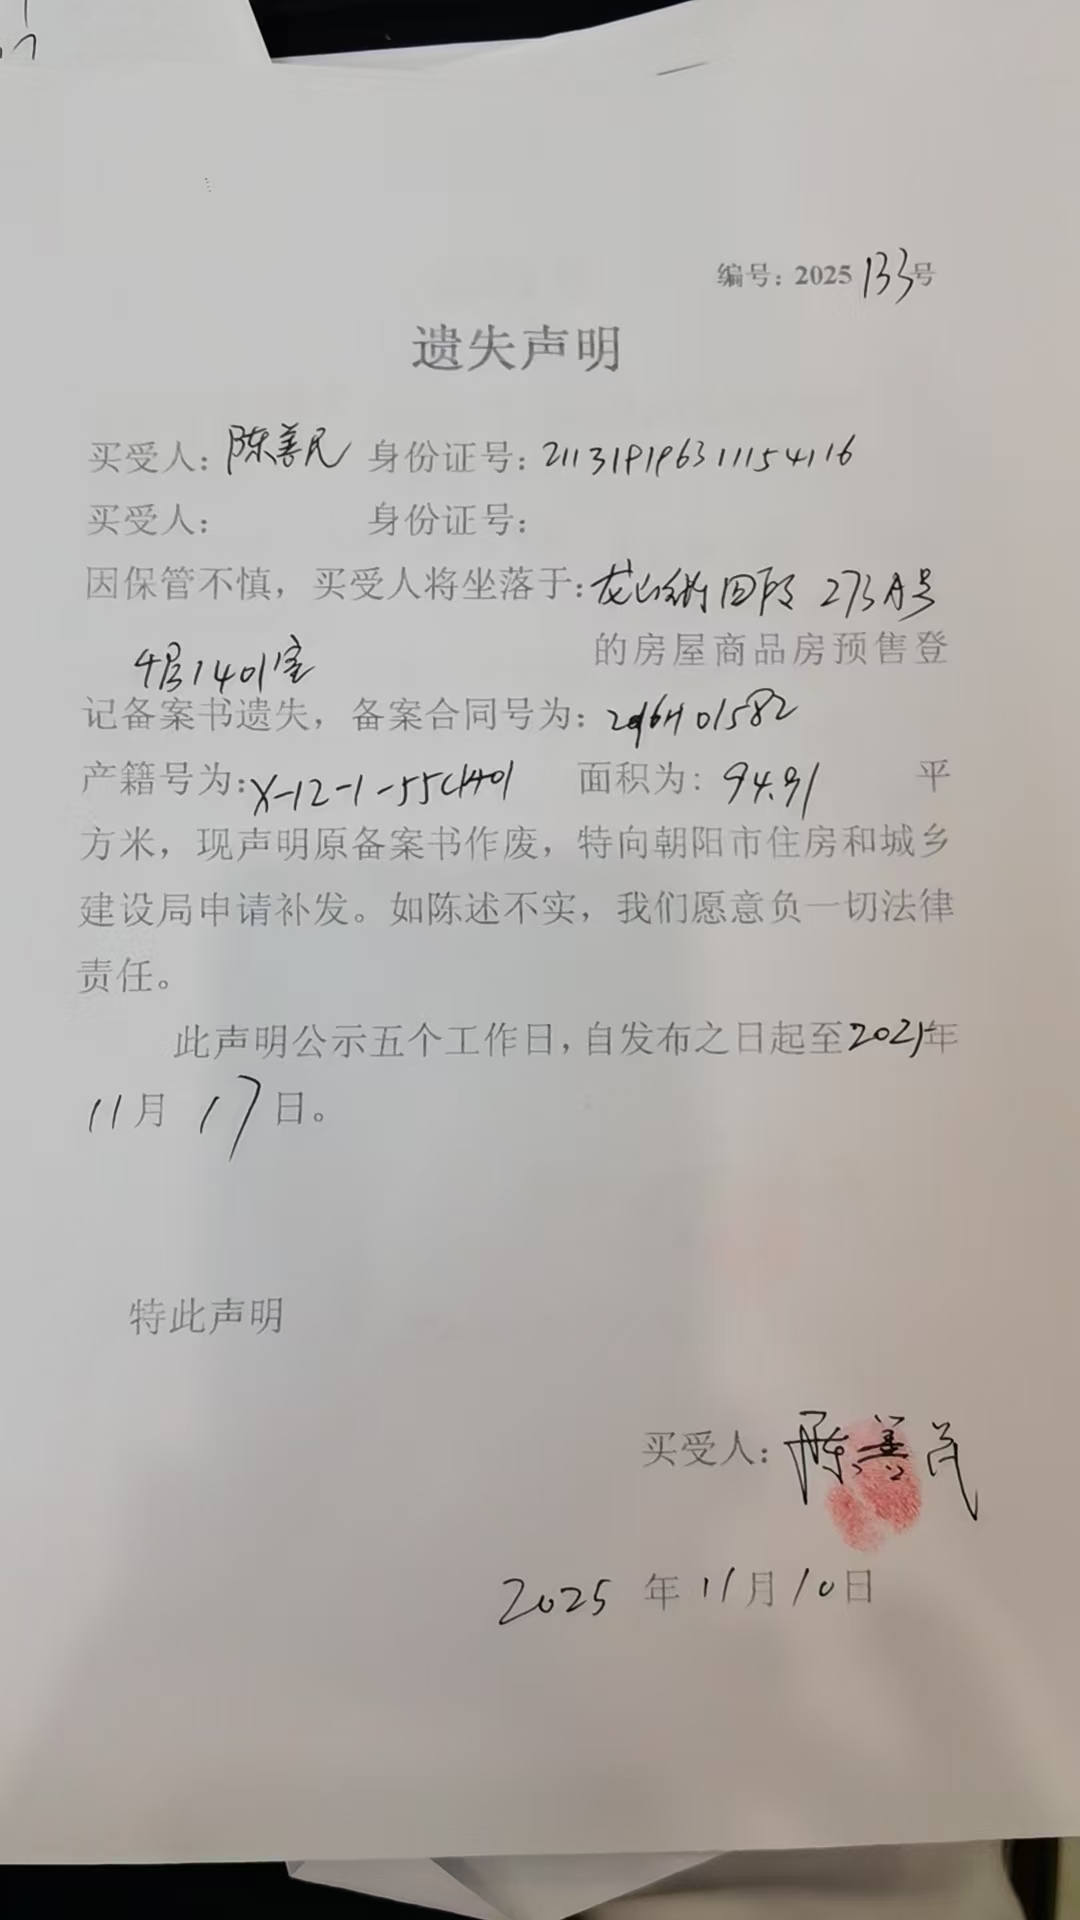 编号：2025 133号
遗失声明
买受人：陈善民 身份证号：211319196311154116
买受人： 身份证号：
因保管不慎，买受人将坐落于：龙山街四段 273A号
1401室 的房屋商品房预售登
记备案书遗失，备案合同号为：01582
产籍号为：X-12-1-55 面积为：94.91 平
方米，现声明原备案书作废，特向朝阳市住房和城乡
建设局申请补发。如陈述不实，我们愿意负一切法律
责任。
此声明公示五个工作日，自发布之日起至2025年
11月 17日。
特此声明
买受人：陈善民
2025 年 11月10日